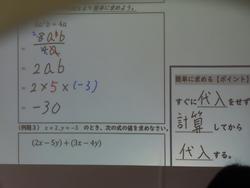 より簡単に求めよう。
8a²b ÷ 4a
8a²b
4a
= 2ab
= 2×5×(-3)
= -30
(例題3) x=2, y=-5 のとき、次の式の値を求めなさい。
(2x-5y)+(3x-4y)
簡単に求める【ポイント】
すぐに代入をせず
計算してから
代入する。